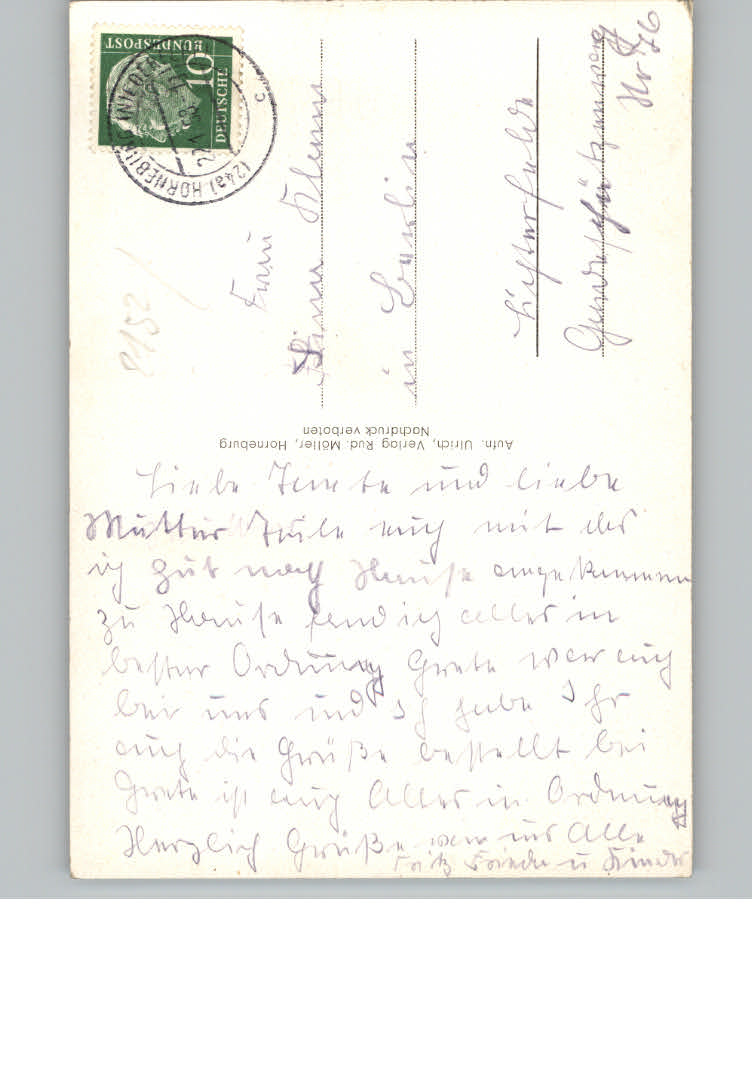 DEUTSCHE
BUNDESPOST
10
(24a) HORNEBURG (NIEDERELBE)
c
Frau
Klemm
in Berlin
Lichterfelde
Gardeschützenweg
Nr 76
Aufn. Ulrich, Verlag Rud. Möller, Horneburg
Nachdruck verboten
Liebe Tante und liebe
Mutter Teile euch mit das
ich gut nach Hause angekommen
zu Hause fand ich alles in
bester Ordnung Grete war auch
bei uns und Ich habe Ihr
auch die Grüße bestellt bei
Grete ist auch Alles in Ordnung
Herzlich Grüße von uns Alle
Fritz Frieda u Kinder